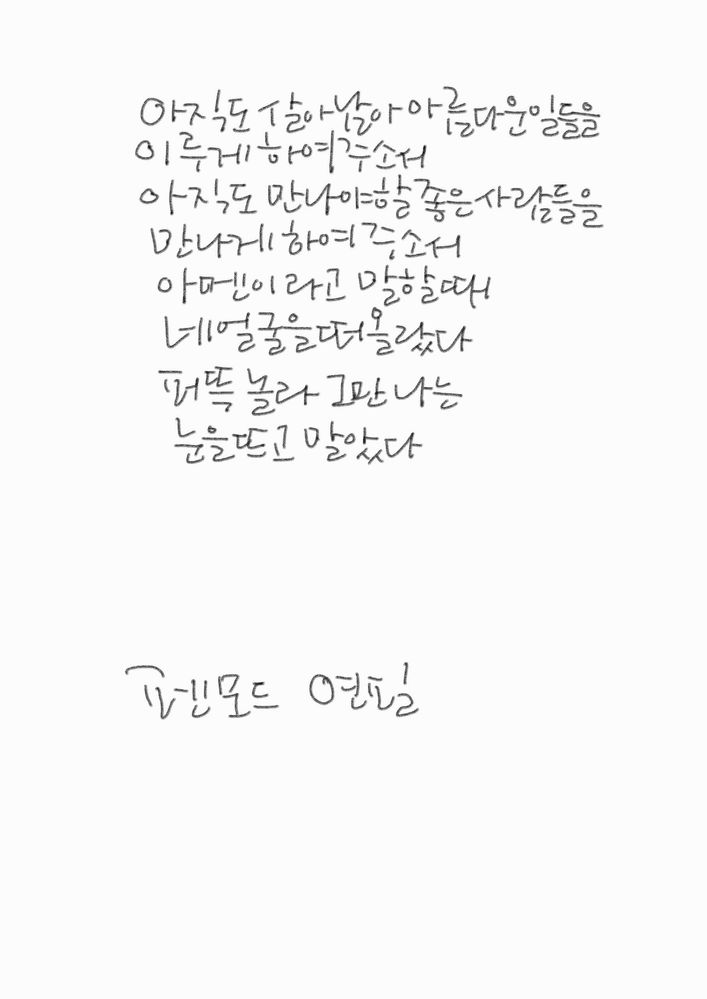 아직도 살아남아 아름다운일들을
이루게 하여주소서
아직도 만나야할 좋은 사람들을
만나게하여주소서
아멘이라고 말할때
네얼굴을떠올랐다
퍼뜩 놀라 그만 나는
눈을뜨고 말았다
펜모드 연필